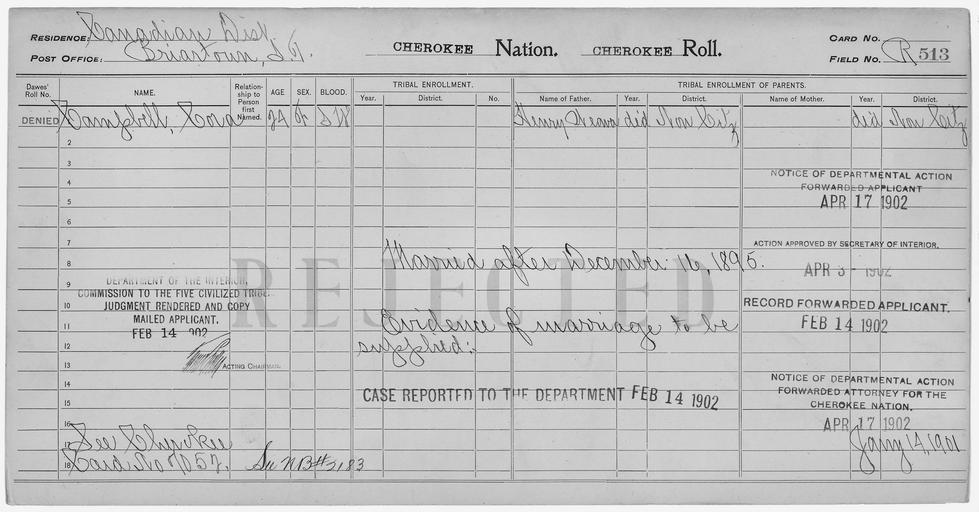 RESIDENCE: Canadian Dist.
POST OFFICE: Briartown, I.T.
CHEROKEE Nation. CHEROKEE Roll.
CARD NO.
FIELD NO. R 513
Dawes' Roll No. NAME. Relationship to Person first Named. AGE SEX. BLOOD. TRIBAL ENROLLMENT. TRIBAL ENROLLMENT OF PARENTS.
Year. District. No. Name of Father. Year. District. Name of Mother. Year. District.
DENIED Campbell, Cora 24 I W Henry did Non Citz did Non Citz
2
3
4
NOTICE OF DEPARTMENTAL ACTION
FORWARDED APPLICANT
5
APR 17 1902
6
7
Married after December 16, 1895.
ACTION APPROVED BY SECRETARY OF INTERIOR.
8
APR 3 - 1902
REJECTED
9
DEPARTMENT OF THE INTERIOR,
COMMISSION TO THE FIVE CIVILIZED TRIBES
10
JUDGMENT RENDERED AND COPY
MAILED APPLICANT.
FEB 14 1902
RECORD FORWARDED APPLICANT.
FEB 14 1902
11
Evidence of marriage to be
supplied:
12
13
ACTING CHAIRMAN.
14
CASE REPORTED TO THE DEPARTMENT FEB 14 1902
NOTICE OF DEPARTMENTAL ACTION
FORWARDED ATTORNEY FOR THE
CHEROKEE NATION.
15
16
APR 17 1902
17 See Cherokee
Jany 14, 1901
18 Card No 7057. See NB# 2183